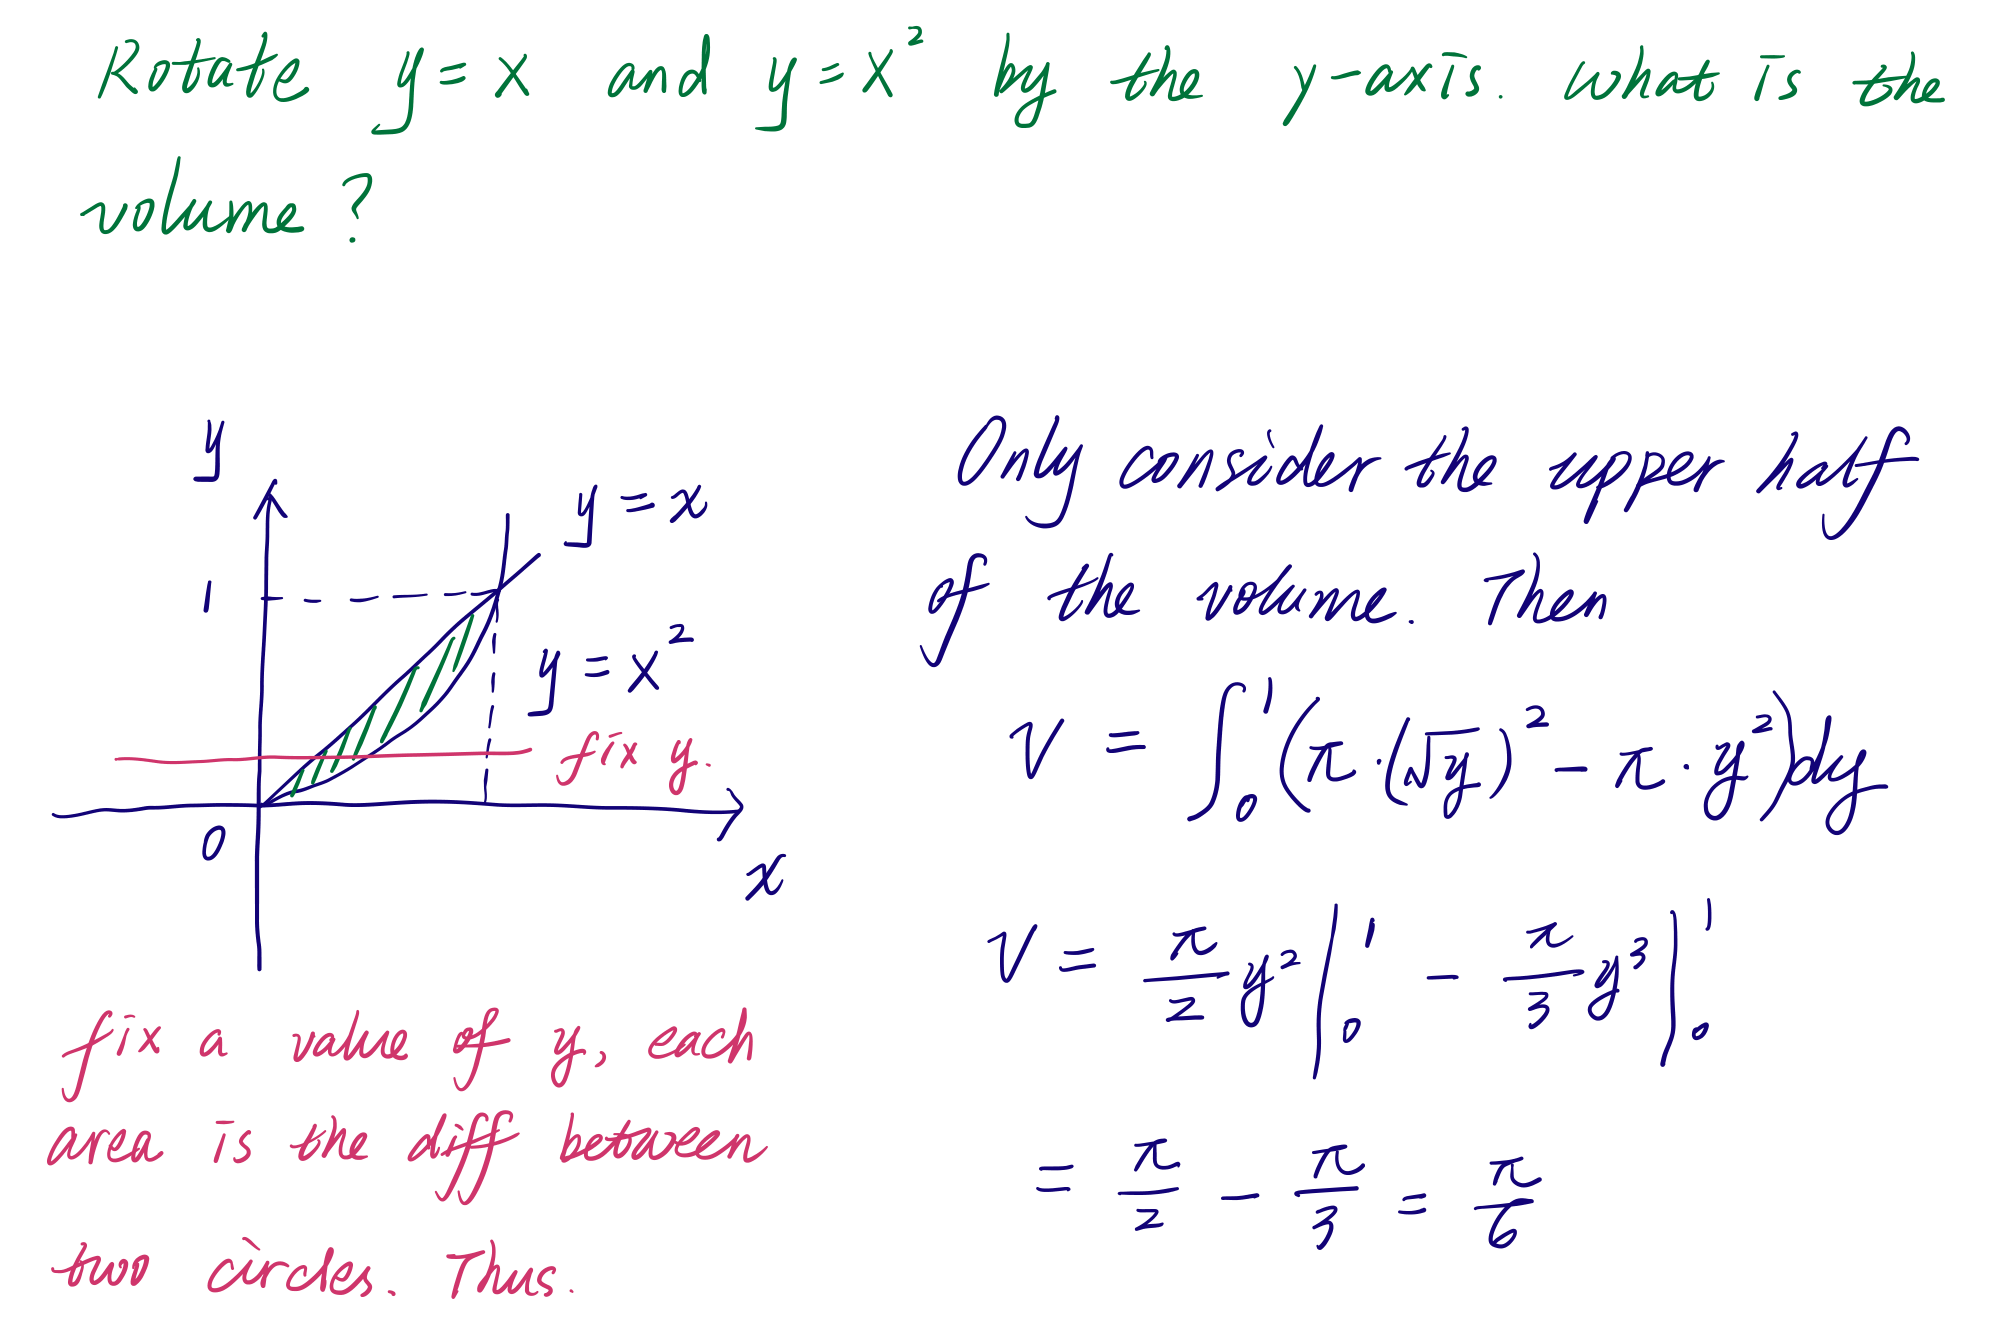 Rotate y = x and y = x² by the y-axis. What is the
volume?
y
1
y = x
y = x²
fix y.
0
x
fix a value of y, each
area is the diff between
two circles. Thus.
Only consider the upper half
of the volume. Then
V = ∫₀¹ (π·(√y)² − π·y²)dy
V = π/2 y² |₀¹ − π/3 y³ |₀¹
= π/2 − π/3 = π/6